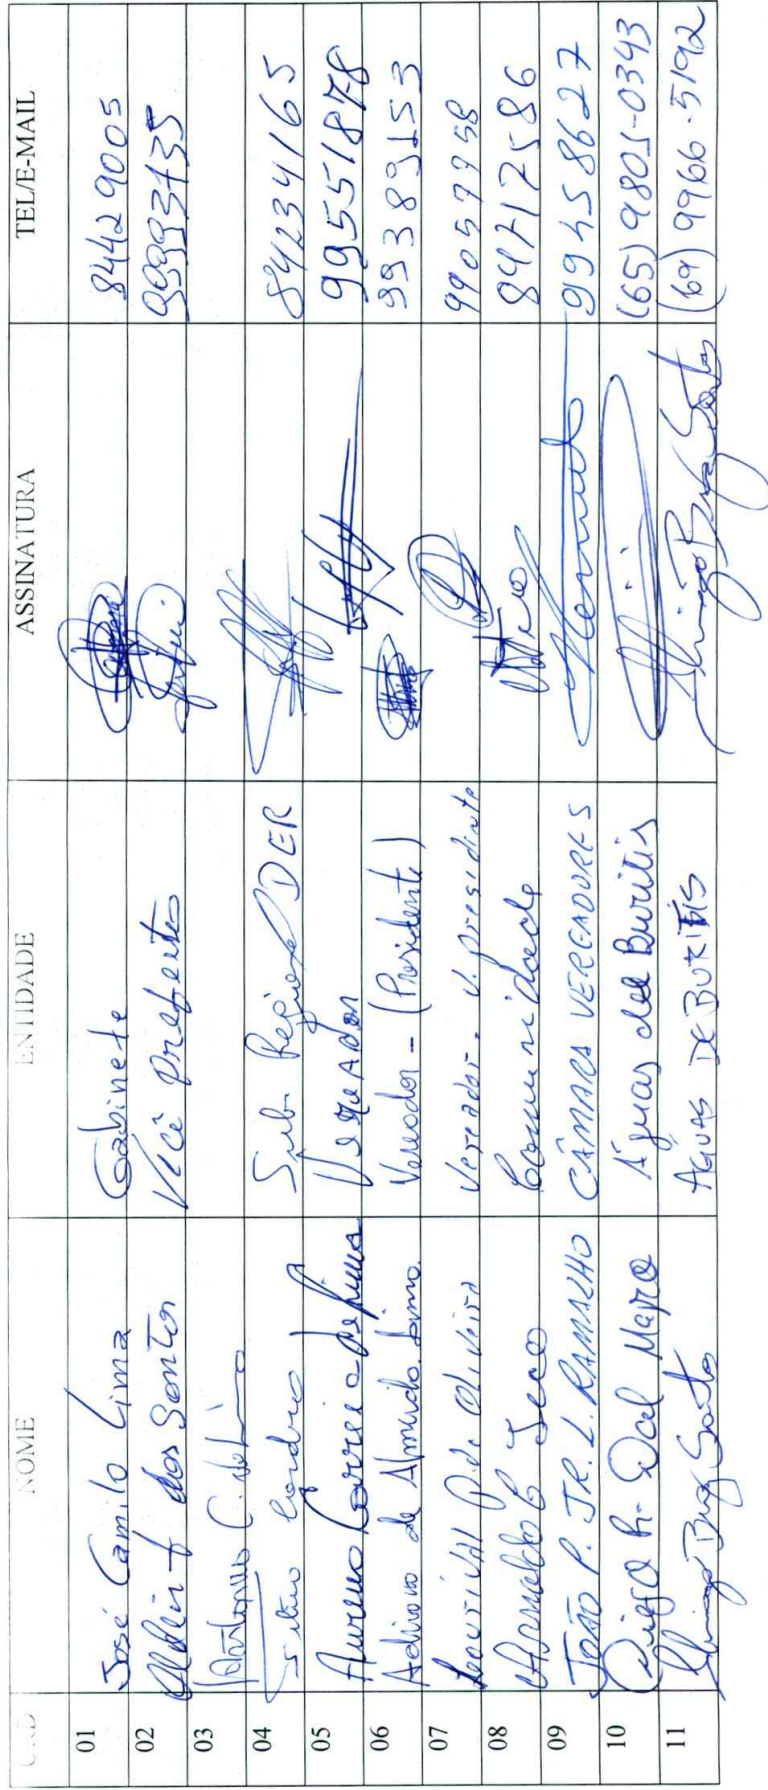 NOME ENTIDADE ASSINATURA TEL/E-MAIL
01 José Camilo Lima Gabinete 84429005
02 dos Santos Vice Prefeito
03 Antonio C. de Lima
04 Silvio Cordeiro Sub. Regional DER 84234165
05 Aureno Correia de Lima Vereador 99551878
06 Adriano de Almeida Lima Vereador - (Presidente) 99389153
07 Lourival P. de Oliveira Vereador - V. presidente 99057958
08 Arnaldo Comunidade 84717586
09 JOÃO P. JR. L. RAMALHO CÂMARA VEREADORES 99458627
10 Diego R. Dal Magro Águas de Buritis (65) 9801-0343
11 Thiago Braga Santos ÁGUAS DE BURITIS Thiago Braga Santos (69) 9966-5192